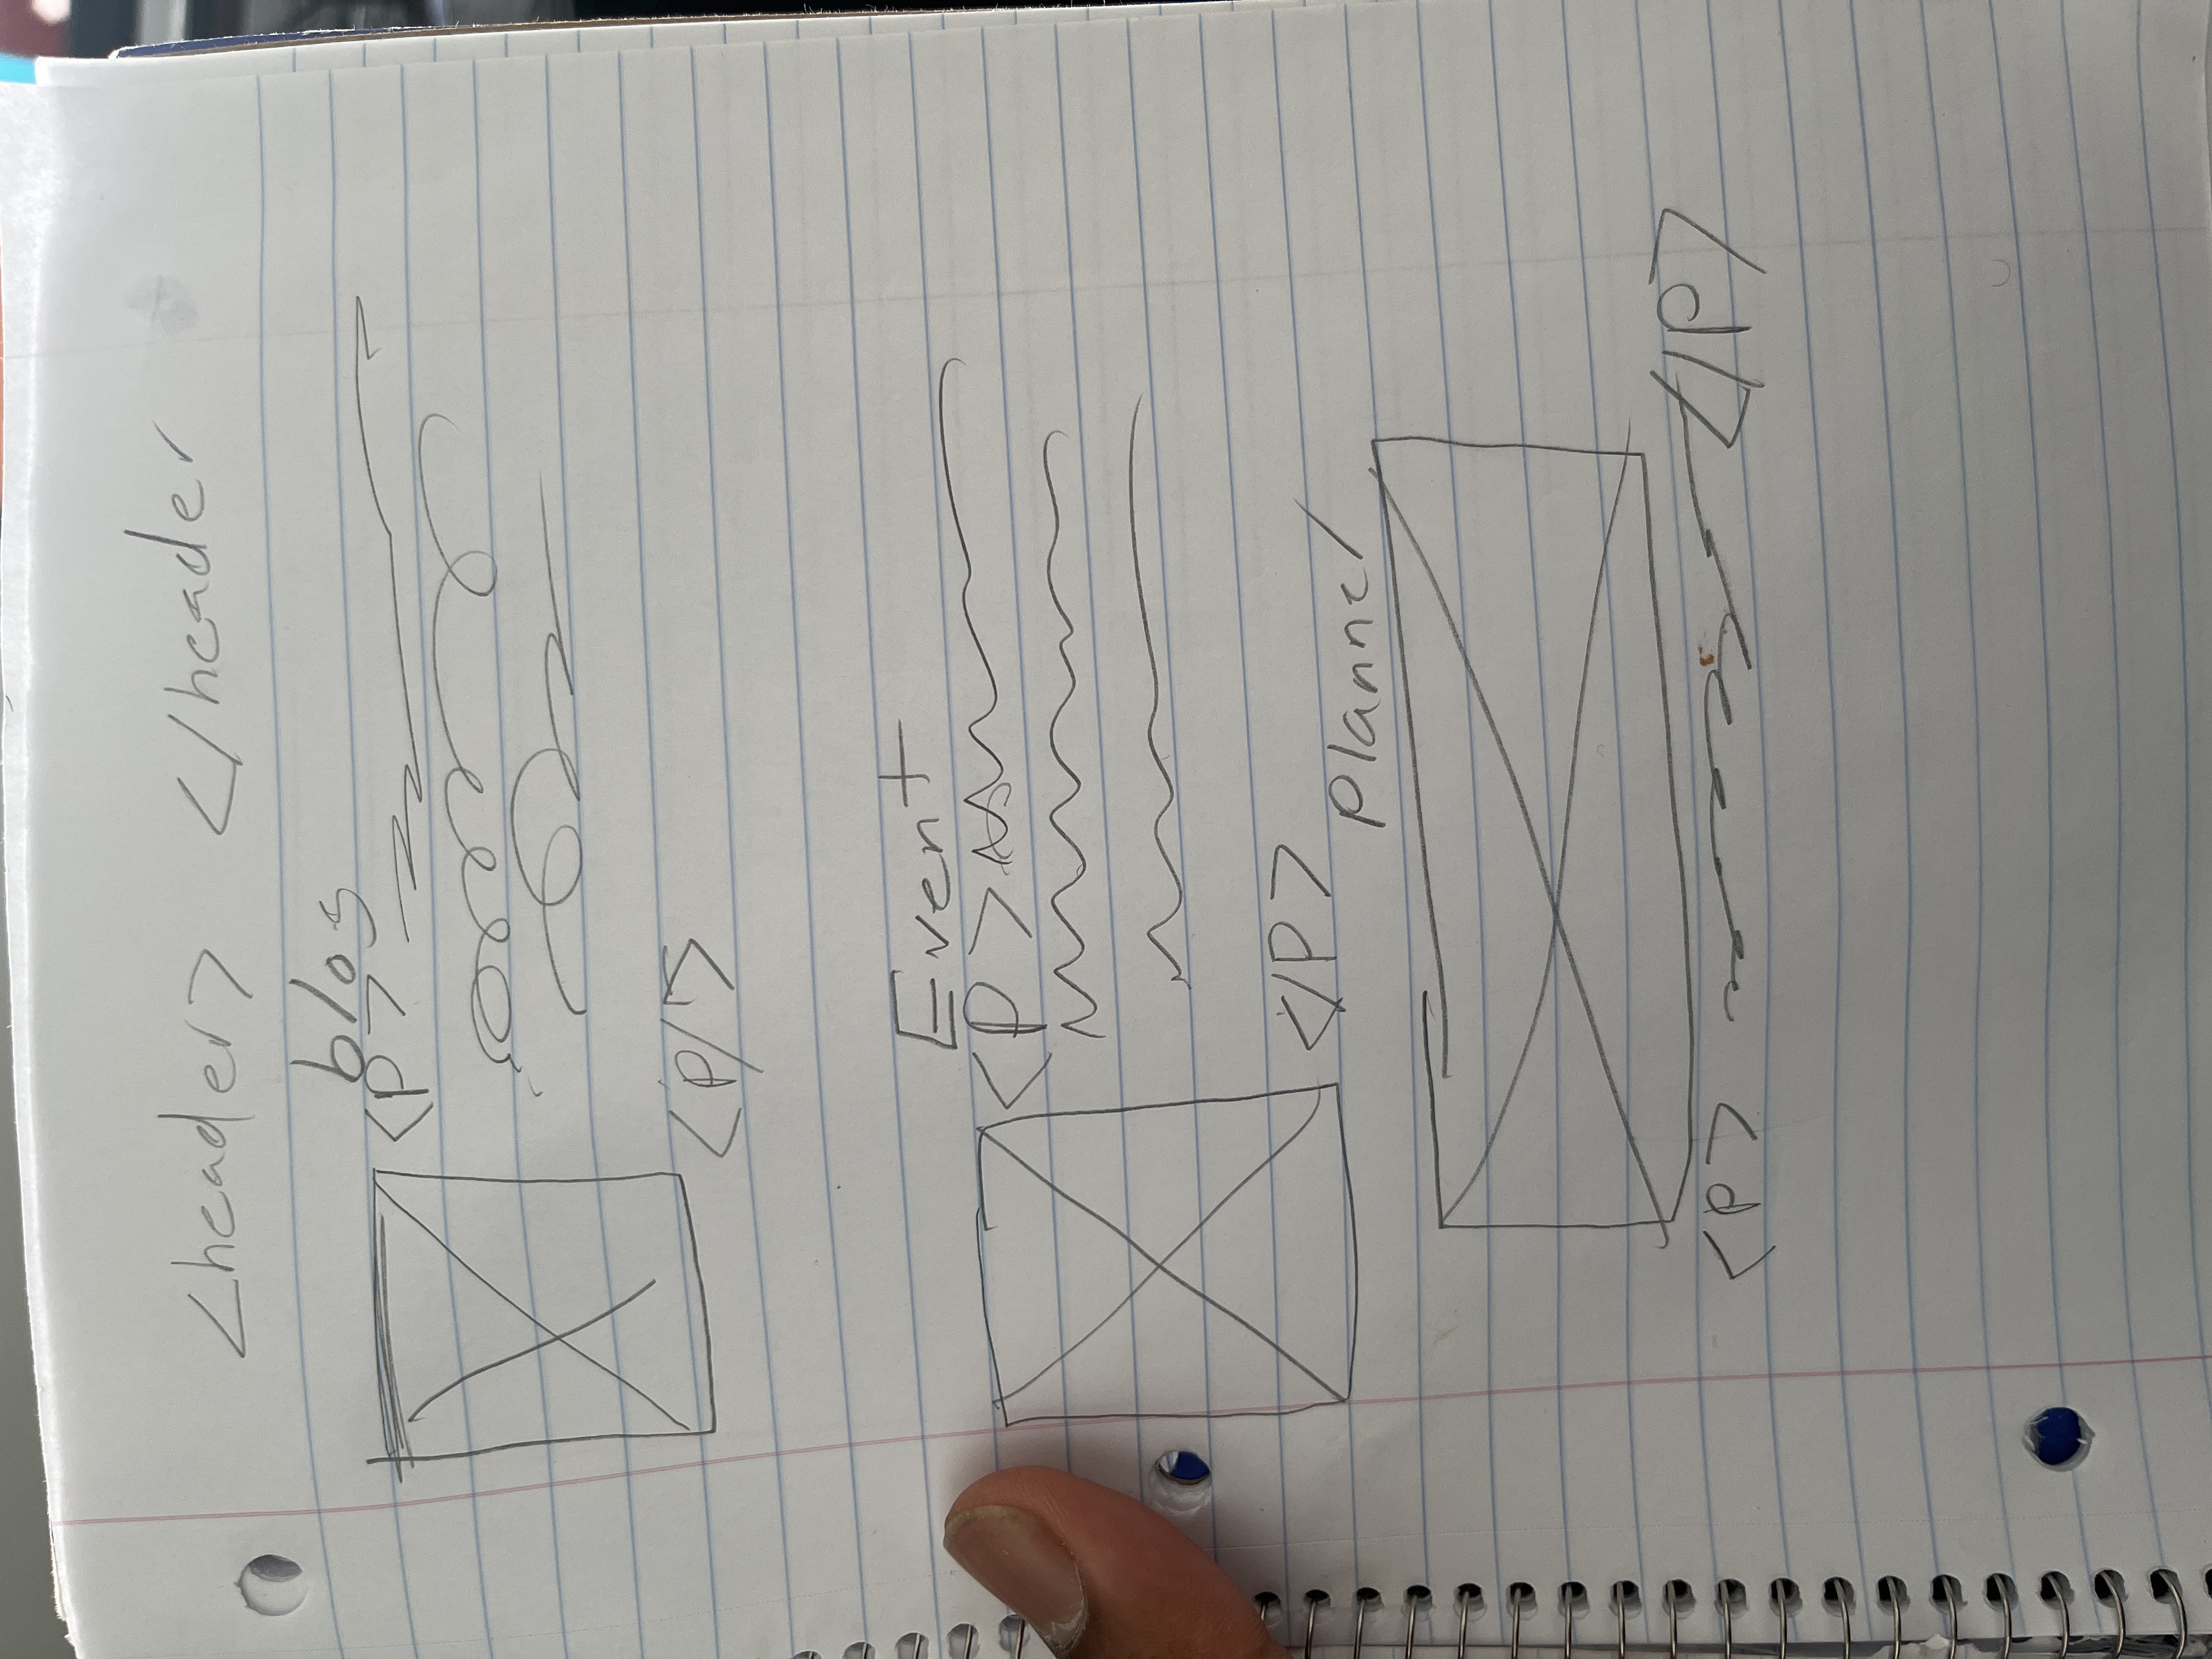 <header> </header
blog
<P>
<P/>
Event
<P>
</P>
Planner
<P> </P>